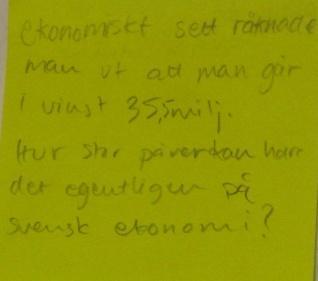 ekonomiskt sett räknade
man ut att man går
i vinst 35,5milj.
Hur stor påverkan harr
det egentligen på
svensk ekonomi?